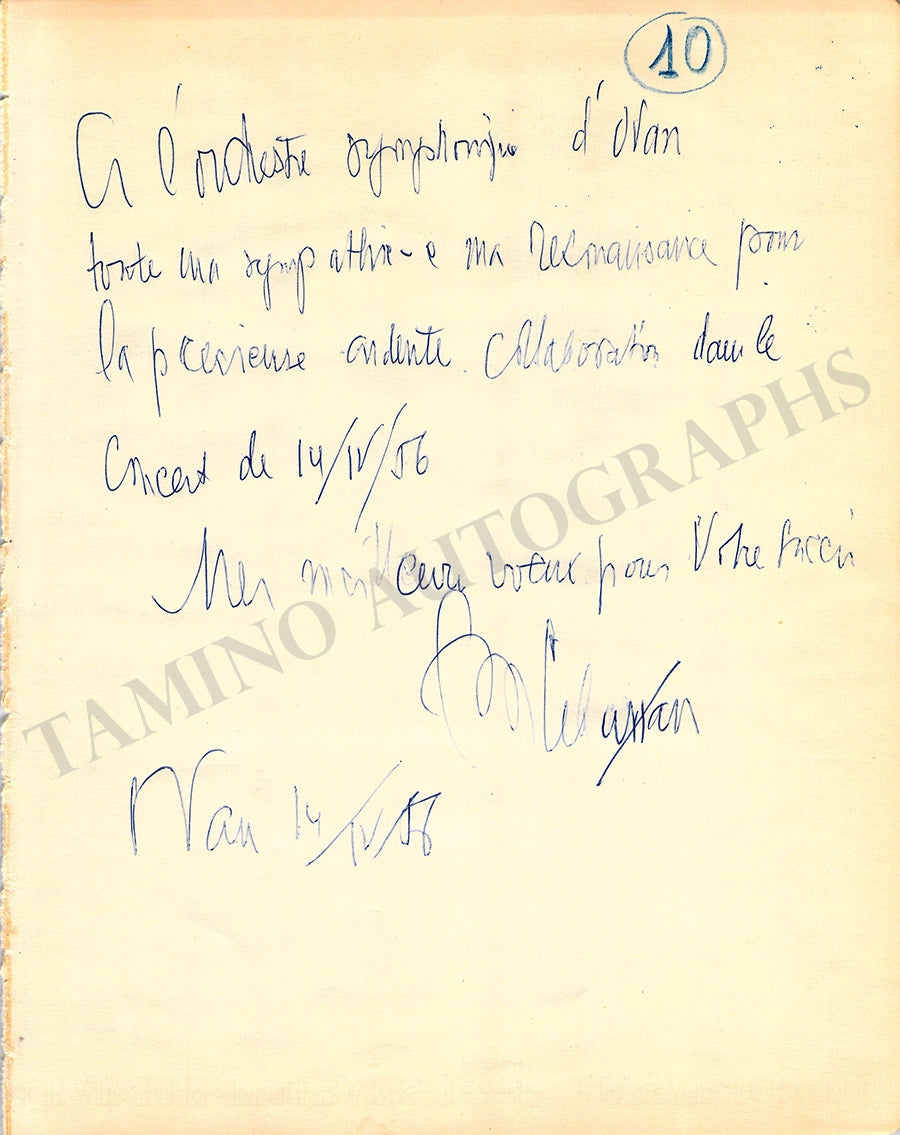 10
A l'orchestre symphonique d'Oran
toute ma sympathie e ma reconaissance pour
la precieuse ardente collaboration dans le
Concert de 14/IV/56
Mes meilleurs voeux pour Votre succès
Oran 14/IV/56
TAMINO AUTOGRAPHS